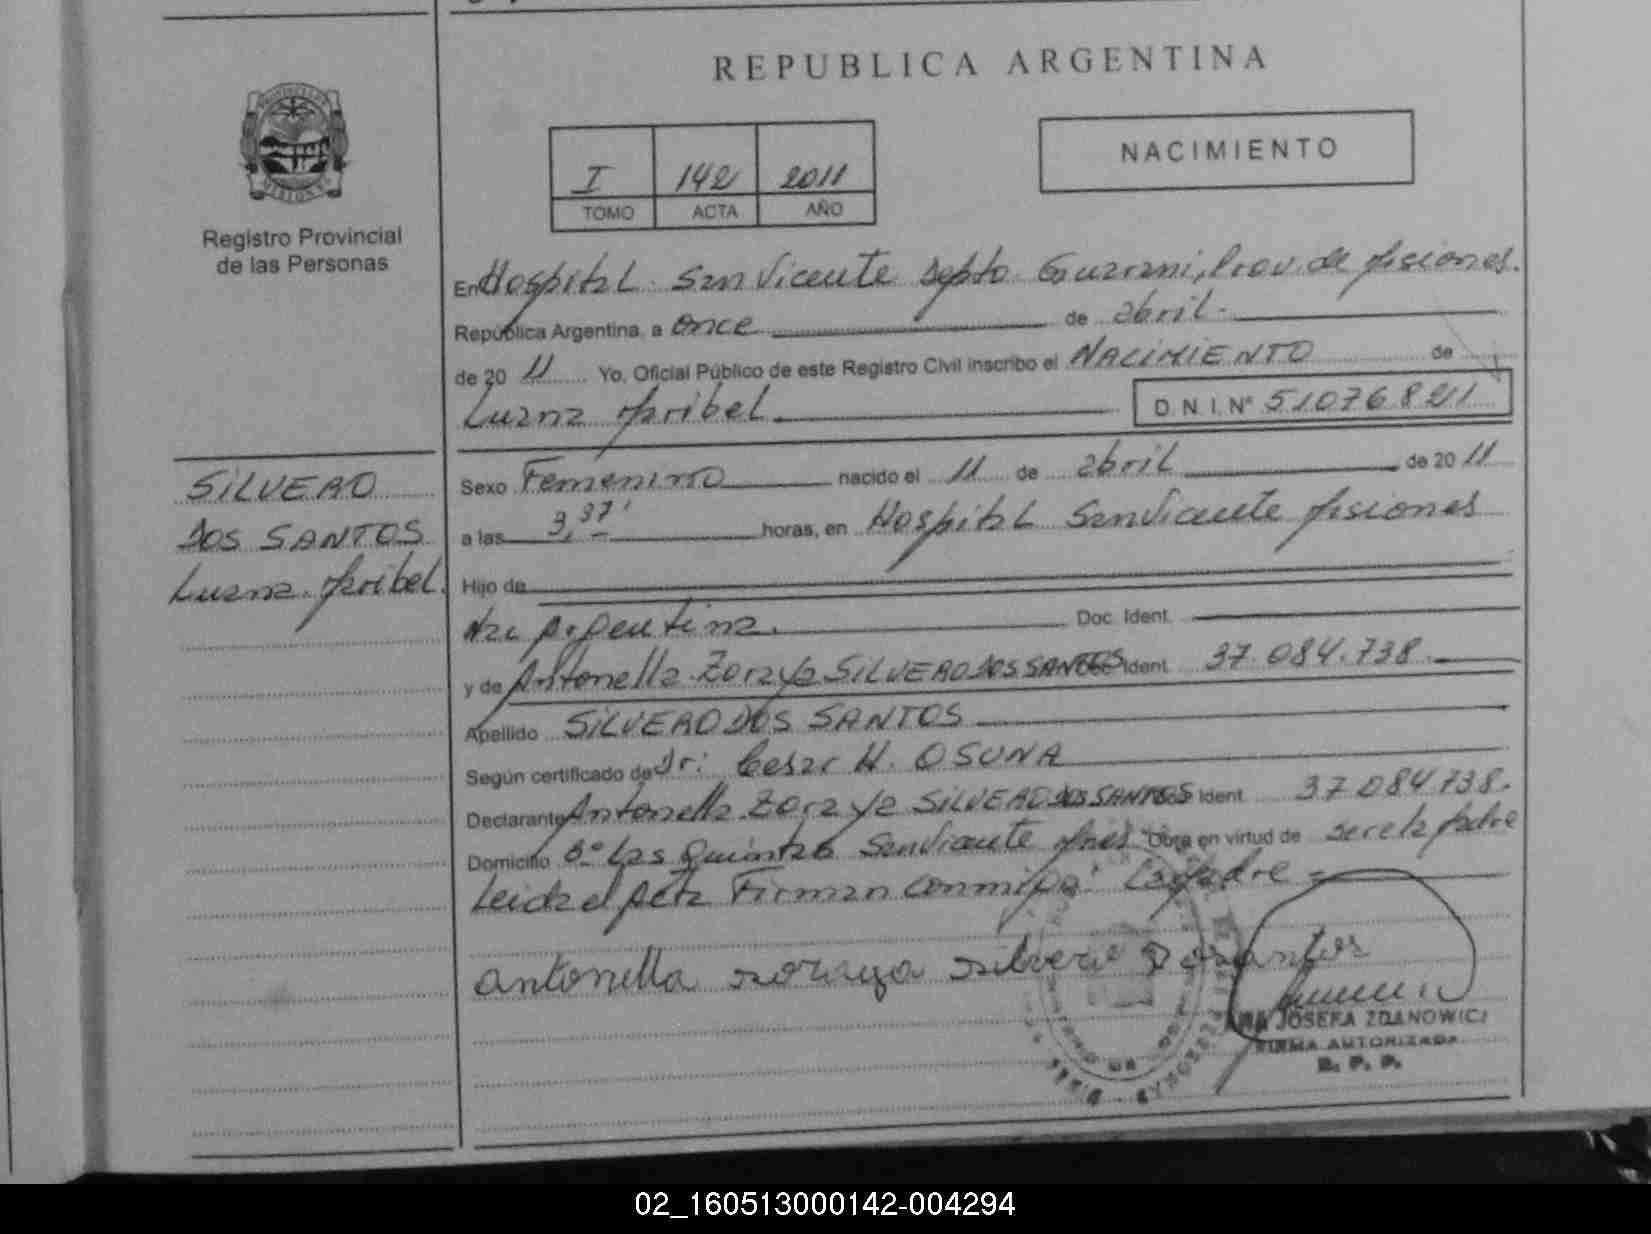 REPUBLICA ARGENTINA
NACIMIENTO
I 142 2011
TOMO ACTA AÑO
Registro Provincial
de las Personas
En Hospital San Vicente Depto. Guarani, Prov. de Misiones.
República Argentina, a once de abril.
de 20 11 Yo, Oficial Público de este Registro Civil inscribo el NACIMIENTO de
Luana Maribel D.N.I. N° 51076821
SILVERO
DOS SANTOS
Luana Maribel.
Sexo Femenino nacido el 11 de abril de 20 11
a las 3,37' horas, en Hospital San Vicente Misiones
Hijo de
Nac Argentina. Doc. Ident.
y de Antonella Zoraya SILVERO DOS SANTOS Doc Ident. 37.084.738.
Apellido SILVERO DOS SANTOS
Según certificado de Dr: Cesar H. OSUNA
Declarante Antonella Zoraya SILVERO DOS SANTOS Doc Ident. 37084738.
Domicilio B° Las Quintas San Vicente Mnes Obra en virtud de ser la Madre
Leida el Acta Firman conmigo: La Madre =
antonella zoraya silvero Dosantos
JOSEFA ZDANOWICZ
FIRMA AUTORIZADA
R. P. P.
02_160513000142-004294